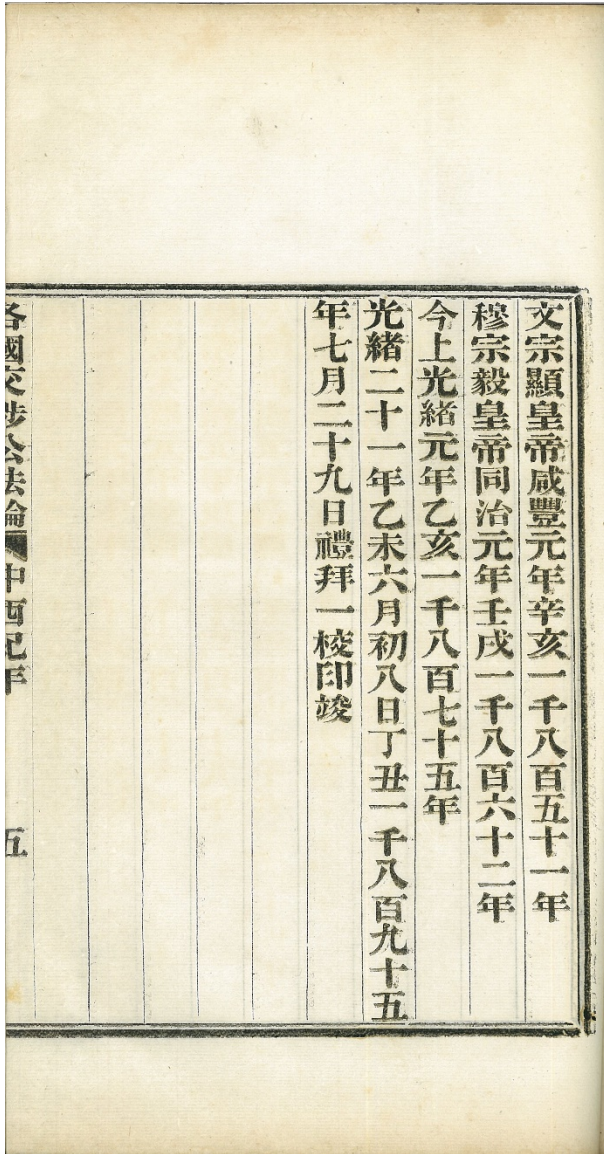 文宗顯皇帝咸豐元年辛亥一千八百五十一年
穆宗毅皇帝同治元年壬戌一千八百六十二年
今上光緒元年乙亥一千八百七十五年
光緒二十一年乙未六月初八日丁丑一千八百九十五
年七月二十九日禮拜一校印竣
各國交涉公法論 中西紀年 五